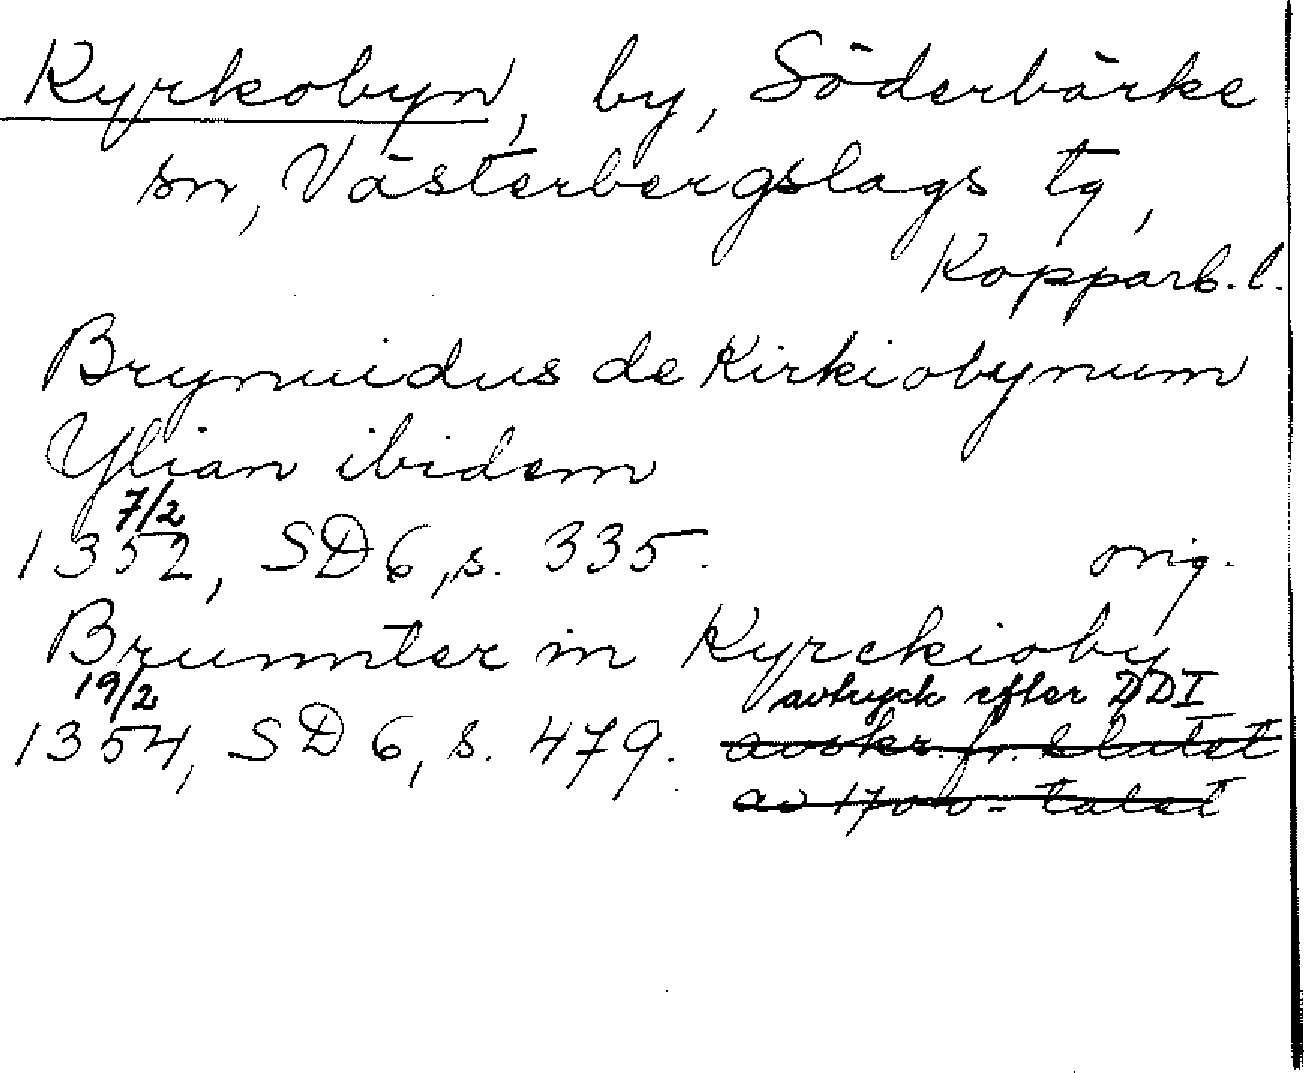 Kyrkobyn, by, Söderbärke
sn, Västerbergslags tg,
Kopparb. l.
Brynuidus de Kirkiobynum
Ylian ibidem
7/2
1352, SD 6, s. 335. orig.
Brunnter in Kyrckioby
19/2 avtryck efter DD I
1354, SD 6, s. 479. avskr. fr. slutet
av 1700-talet